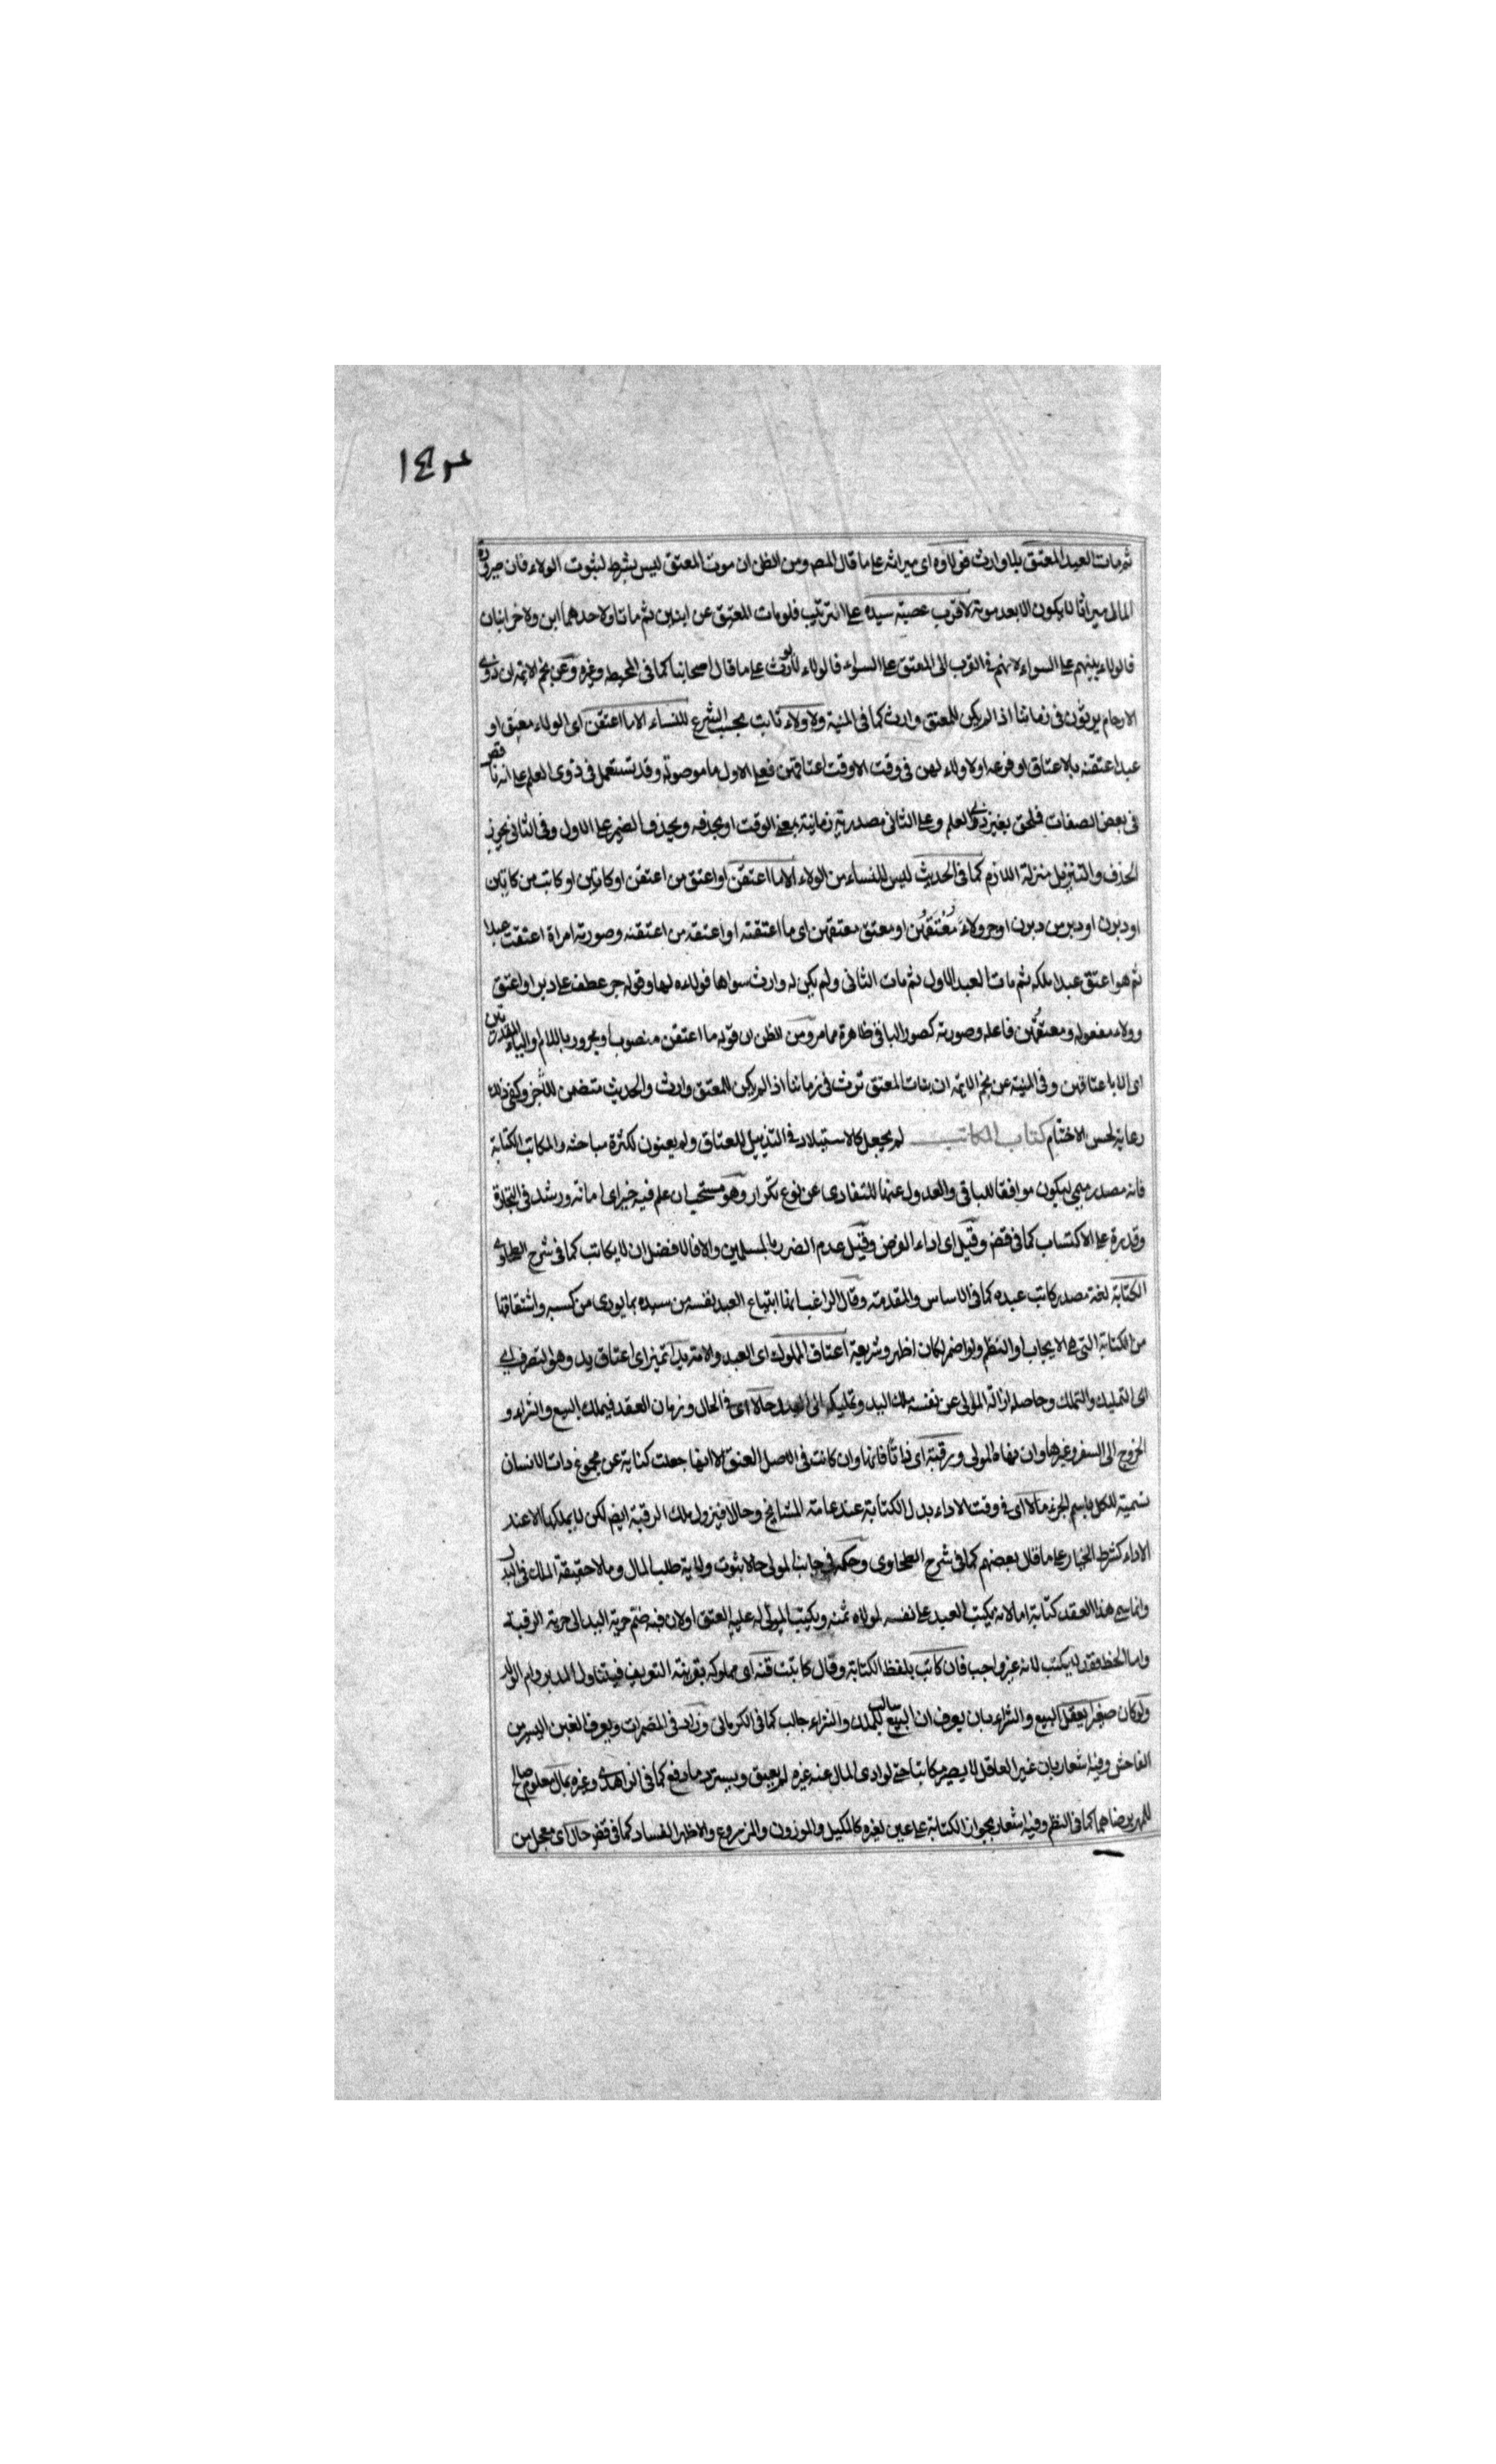 ١٤٣
ثم مات العبد المعتق بلا وارث فولاوه اى ميراثه على ما قال المص ومن الظن ان موت المعتق ليس بشرط لثبوت الولاء فان صيرورة
المال ميراثا لا يكون الا بعد موته لاقرب عصبة سيده على الترتيب فلو مات المعتق عن ابنين ثم ماتا ولاحدهما ابن ولاخر ابنان
فالولاء بينهم على السواء لانهم فى القرب الى المعتق على السواء فالولاء لا يورث على ما قال اصحابنا كما فى المحيط وغيره وعن نجم الائمة ان ذوى
الارحام يرثون فى زماننا اذا لم يكن للمعتق وارث كما فى المنية ولا ولاء ثابت بحسب الشرع للنساء الا ما اعتقن اى الولاء معتق او
عبد اعتقنه بالاعتاق او فرعه اولا ولاء لهن فى وقت الا وقت اعتاقهن فعلى الاول ما موصولة وقد تستعمل فى ذوى العلم على انه ناقص
فى بعض الصفات فلحق بغير ذوى العلم وعلى الثانى مصدرية زمانية بمعنى الوقت او بحذفه ويحذف الضمير على الاول وفى الثانى يجوز
الحذف والتنزيل منزلة اللازم كما فى الحديث ليس للنساء من الولاء الا ما اعتقن او اعتق من اعتقن او كاتبن او كاتب من كاتبن
او دبرن او دبر من دبرن او جر ولاء معتقهن او معتق معتقهن اى ما اعتقنه او اعتقه من اعتقنه وصورته امراة اعتقت عبدا
ثم هو اعتق عبدا ملكه ثم مات العبد الاول ثم مات الثانى ولم يكن له وارث سواها فولاءه لها وقوله جر عطف على دبر او اعتق
وولاء مفعوله ومعتقهن فاعله وصورته كصور الباقى ظاهرة مما مر ومن الظن ان قوله ما اعتقن منصوب او مجرور باللام والباء المقدرتين
اى الا باعتاقهن وفى المنية عن نجم الائمة ان بنات المعتق ترث فى زماننا اذا لم يكن للمعتق وارث والحديث متضمن للتجز وكفى ذلك
رعاية لحسن الاختتام كتاب المكاتب لم يجعل كالاستيلاد فى التذييل للعتاق ولم يعنون لكثرة مباحثه والمكاتب الكتابة
فانه مصدر ميمى ليكون موافقا للباقى والعدول عنها للتفادى عن نوع تكرار وهو مستحب ان علم فيه خيرا اى امانة ورشد فى التجارة
وقدرة على الاكتساب كما فى قض وقيل اى اداء الفرض وقيل عدم الضرر بالمسلمين والا فالافضل ان لا يكاتب كما فى شرح الطحاوى
الكتابة لغة مصدر كاتب عبده كما فى الاساس والمقدمة وقال الراغب انها ابتياع العبد نفسه من سيده بما يودى من كسبه واشتقاقها
من الكتابة التى هى الايجاب او النظم والضم كان اظهر وشريعة اعتاق المملوك اى العبد والامة يدا تميز اى اعتاق يد وهو التصرف اى
اى التمليك والتملك وحاصله ازالة المولى عن نفسه ملك اليد وتمليكه الى العبد حالا اى فى الحال وزمان العقد فيملك البيع والشراء و
الخروج الى السفر وغيرها وان نهاه المولى ورقبة اى ذاتا فانها وان كانت فى الاصل العنق الا انها جعلت كناية عن مجموع ذات الانسان
تسمية للكل باسم الجزء مالا اى فى وقت الاداء بدل الكتابة عند عامة المشايخ وحالا فيزول ملك الرقبة ايضا لكن لا يملكها الا عند
الاداء كشرط الخيار على ما قال بعضهم كما فى شرح الطحاوى وحكمه فى جانب المولى حالا ثبوت ولاية طلب المال ومالا حقيقة الملك فى البدل
وانما سمى هذا العقد كتابة اما لانه يكتب العبد على نفسه لمولاه ثمنه ويكتب المولى له عليه العتق او لان فيه ضم حرية اليد الى حرية الرقبة
واما الخط فقد لا يكتب لانه غير واجب فان كاتب بلفظ الكتابة وقال كاتبت قنه اى مملوكه بقرينة التعريف فيتناول المدبر وام الولد
ولو كان صغيرا يعقل البيع والشراء بان يعرف ان البيع سالب للملك والشراء جالب كما فى الكرمانى وزاد فى المضمرات ويعرف الغبن اليسير من
الفاحش وفيه اشعار بان غير العاقل لا يصير مكاتبا حتى لو ادى المال عنه غيره لم يعتق ويسترد ما دفع كما فى الزاهدى وغيره بمال معلوم صالح
للمهر برضاهما كما فى النظم وفيه اشعار بجواز الكتابة على عين لغيره كالمكيل والموزون والمزروع والاظهر الفساد كما فى قض حال اى معجل من